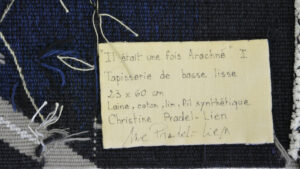 "Il était une fois Arachné" I
Tapisserie de basse lisse
23 x 60 cm
Laine, coton, lin, fil synthétique
Christine Pradel-Lien
Pradel-Lien